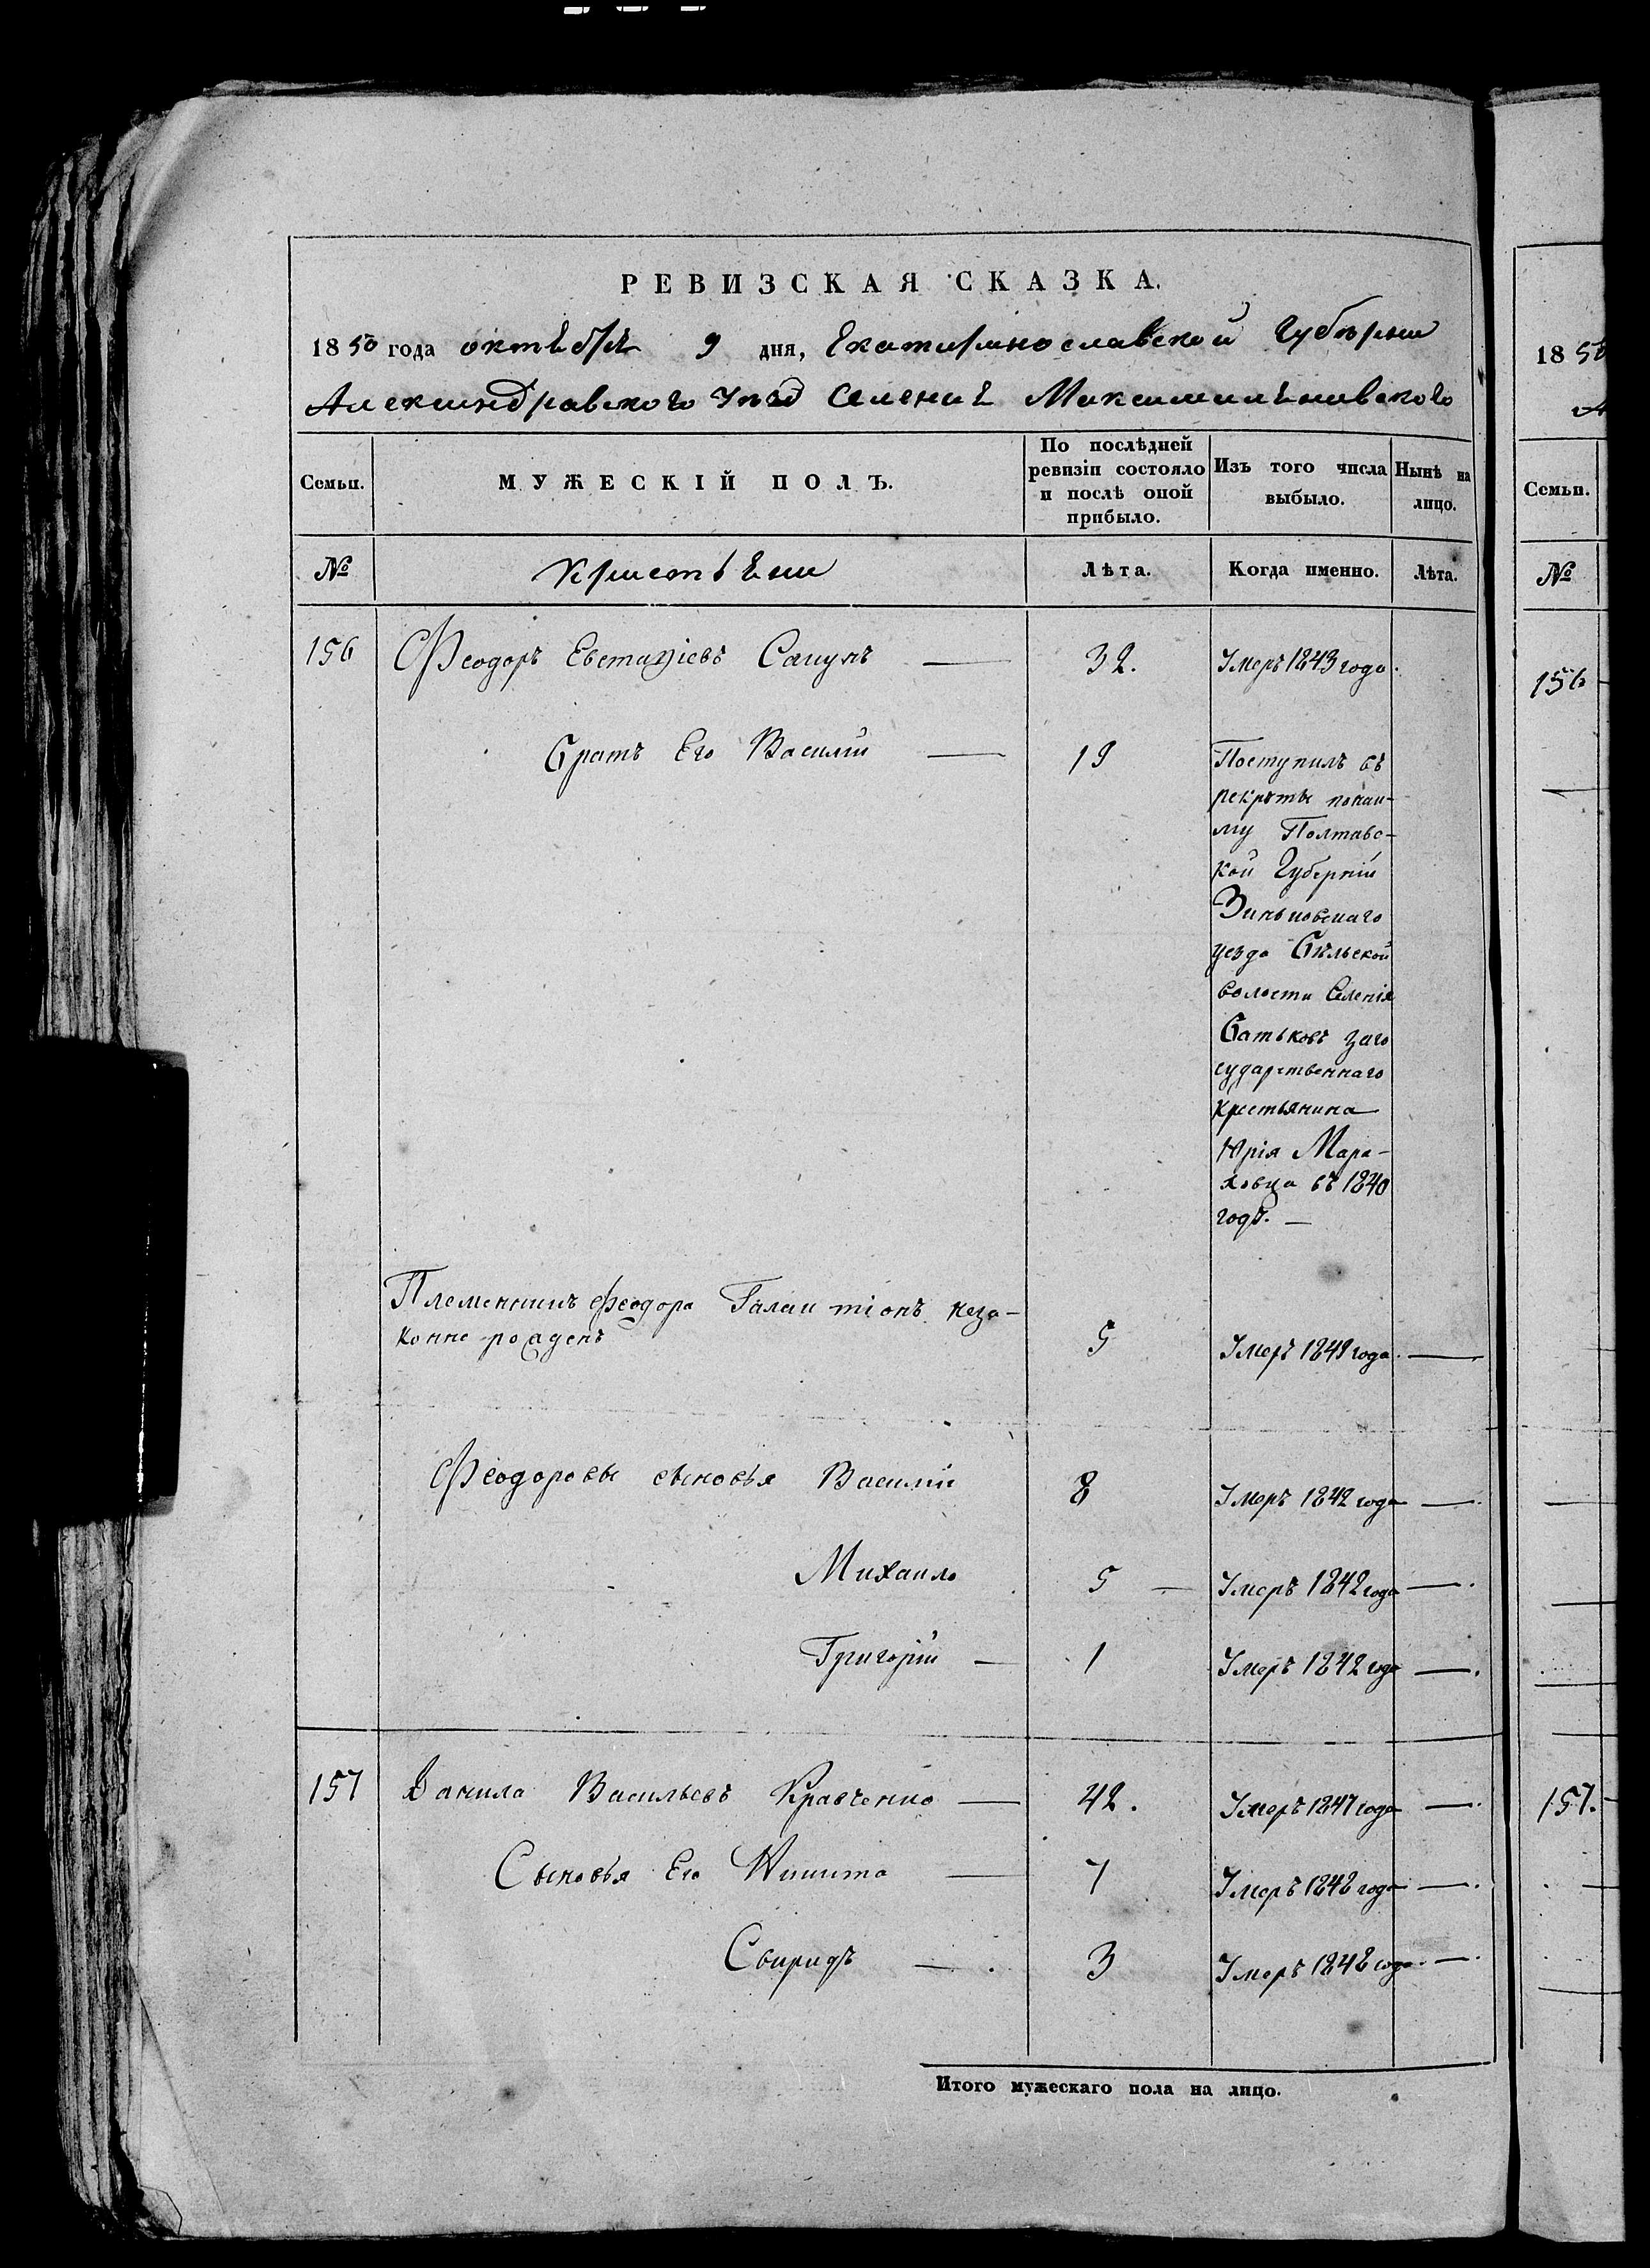 РЕВИЗСКАЯ СКАЗКА.
1850 года октября 9 дня, Екатеринославской Губернии
Александравского Уезд Селения Максимиляновского
Семьи. МУЖЕСКІЙ ПОЛЪ. По послѣдней ревизіи состояло и послѣ оной прибыло. Изъ того числа выбыло. Нынѣ на лицо.
№ Кристьяни Лѣта. Когда именно. Лѣта.
156 Феодоръ Евстафіевъ Сапунъ — 32. Умеръ 1843 года.
Братъ Его Василій — 19 Поступилъ въ
рекруты понаи-
му Полтавс-
кой Губерніи
Зиньковскаго
уезда Бѣльской
волости Селенія
Батьковъ заго
сударственнаго
крестьянина
Юрія Мара-
ховца въ 1840
годъ. —
Племенникъ Феодора Галактіонъ неза-
конно рожденъ 5 Умеръ 1849 года. —
Феодоровы сыновья Василій 8 Умеръ 1842 года —
Михаило 5 — Умеръ 1842 года —
Григорій — 1 Умеръ 1842 года —
157 Данила Васильевъ Кравченко — 42. Умеръ 1847 года —
Сыновья Его Никита — 7 Умеръ 1848 года —
Свиридъ — 3 Умеръ 1848 года. —
Итого мужескаго пола на лицо.
1850
А
Семьи.
№
156
157.